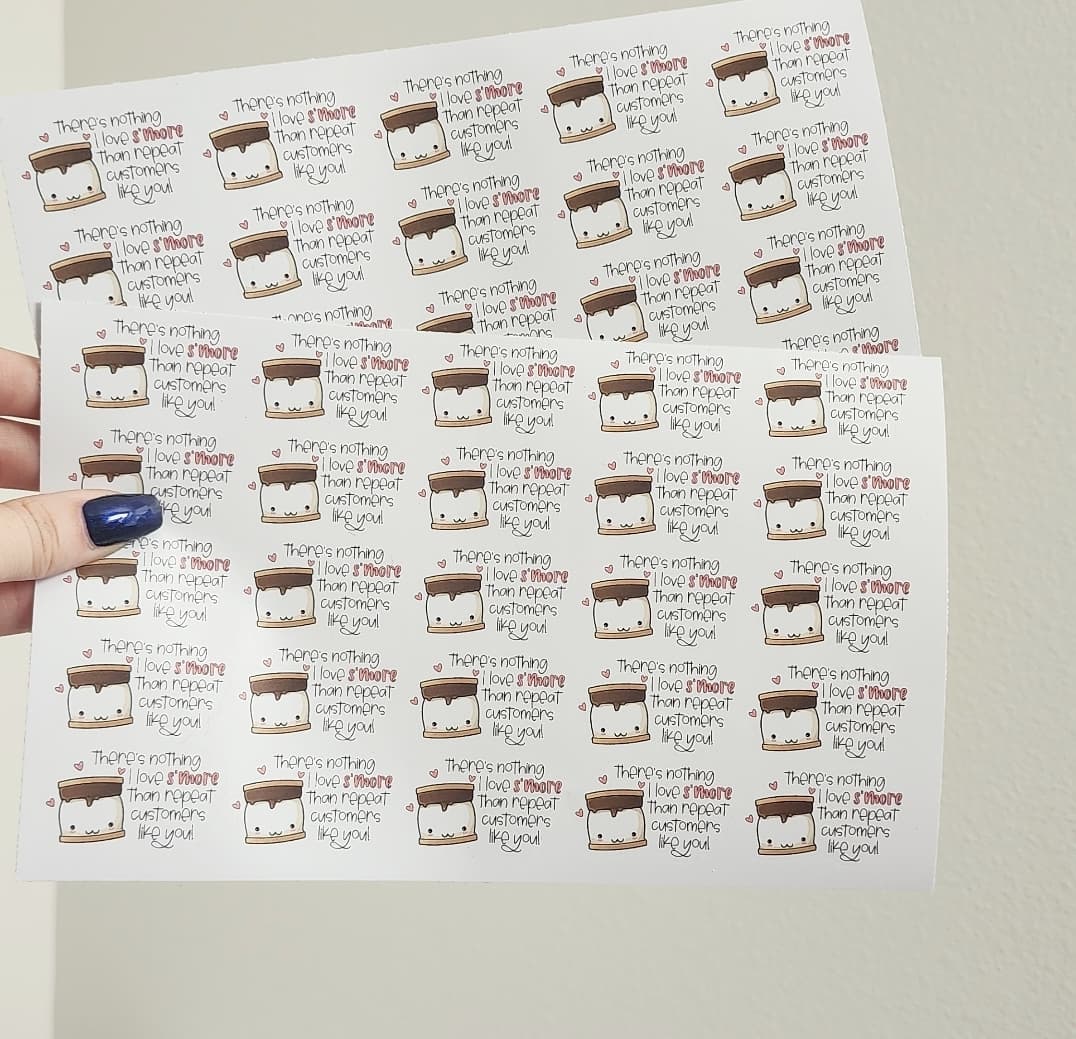 There's nothing
I love s'more
than repeat
customers
like you!
There's nothing
I love s'more
than repeat
customers
like you!
There's nothing
I love s'more
than repeat
customers
like you!
There's nothing
I love s'more
than repeat
customers
like you!
There's nothing
I love s'more
than repeat
customers
like you!
There's nothing
I love s'more
than repeat
customers
like you!
There's nothing
I love s'more
than repeat
customers
like you!
There's nothing
I love s'more
than repeat
customers
like you!
There's nothing
I love s'more
than repeat
customers
like you!
There's nothing
I love s'more
than repeat
customers
like you!
nothing
There's nothing
I love s'more
than repeat
There's nothing
I love s'more
than repeat
customers
like you!
There's nothing
I love s'more
than repeat
customers
like you!
There's nothing
s'more
There's nothing
I love s'more
than repeat
customers
like you!
There's nothing
I love s'more
than repeat
customers
like you!
There's nothing
I love s'more
than repeat
customers
like you!
There's nothing
I love s'more
than repeat
customers
like you!
There's nothing
I love s'more
than repeat
customers
like you!
There's nothing
I love s'more
than repeat
customers
like you!
There's nothing
I love s'more
than repeat
customers
like you!
There's nothing
I love s'more
than repeat
customers
like you!
There's nothing
I love s'more
than repeat
customers
like you!
There's nothing
I love s'more
than repeat
customers
like you!
nothing
I love s'more
than repeat
customers
like you!
There's nothing
I love s'more
than repeat
customers
like you!
There's nothing
I love s'more
than repeat
customers
like you!
There's nothing
I love s'more
than repeat
customers
like you!
There's nothing
I love s'more
than repeat
customers
like you!
There's nothing
I love s'more
than repeat
customers
like you!
There's nothing
I love s'more
than repeat
customers
like you!
There's nothing
I love s'more
than repeat
customers
like you!
There's nothing
I love s'more
than repeat
customers
like you!
There's nothing
I love s'more
than repeat
customers
like you!
There's nothing
I love s'more
than repeat
customers
like you!
There's nothing
I love s'more
than repeat
customers
like you!
There's nothing
I love s'more
than repeat
customers
like you!
There's nothing
I love s'more
than repeat
customers
like you!
There's nothing
I love s'more
than repeat
customers
like you!